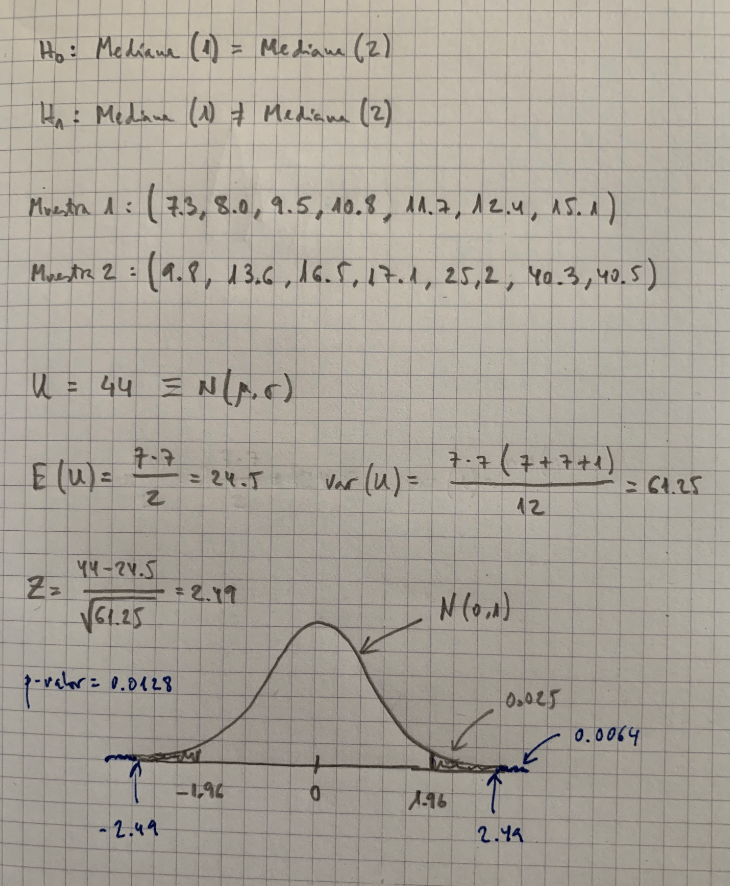 H₀: Mediana (1) = Mediana (2)
H₁: Mediana (1) ≠ Mediana (2)
Muestra 1: (7.3, 8.0, 9.5, 10.8, 11.7, 12.4, 15.1)
Muestra 2: (9.8, 13.6, 16.5, 17.1, 25,2, 40.3, 40.5)
U = 44 ≡ N(μ,σ)
E(U) = 7·7/2 = 24.5 var(U) = 7·7(7+7+1)/12 = 61.25
Z = 44-24.5/√61.25 = 2.49
N(0,1)
p-valor = 0.0128
0.025
0.0064
-1.96 0 1.96
-2.49 2.49